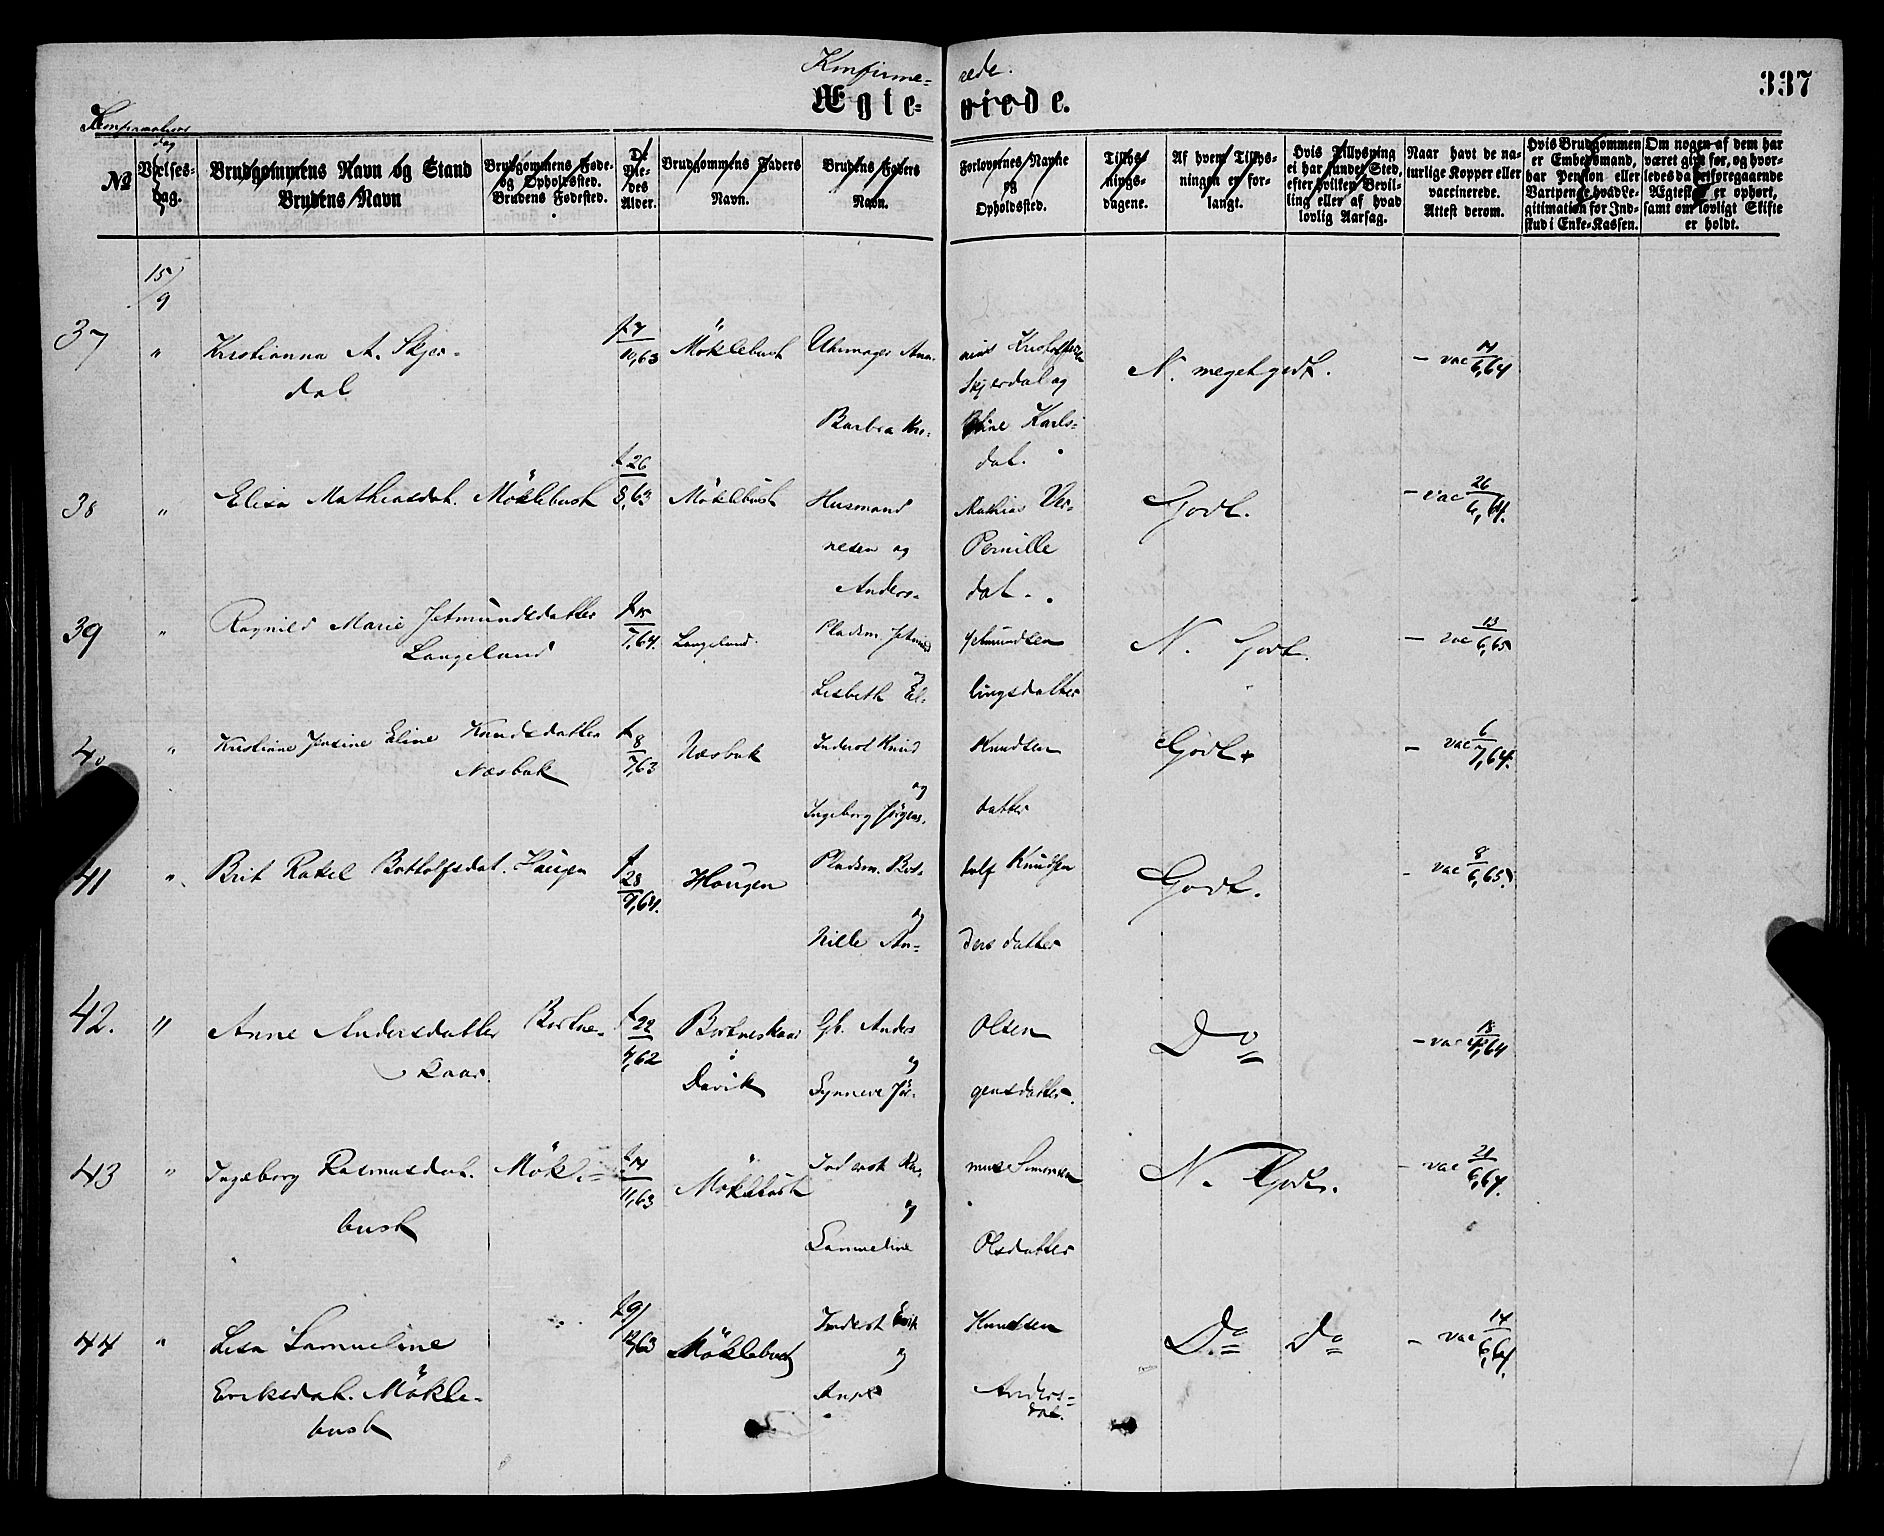 Konfirme= rede.
337
Ægte= viede.
Konfirmations
dag
No
Vielses-
dag.
Brudgommens Navn og Stand
Brudens Navn
Brudgommens Føde-
og Opholdssted.
Brudens Fødested.
De
Vie-
des
Alder.
Brudgommens Faders
Navn.
Brudens Faders
Navn.
Forlovernes Navne
og
Opholdssted.
Tillys-
nings-
dagene.
Af hvem Tillys-
ningen er for-
langt.
Hvis Tillysning
ei har fundet Sted,
efter hvilken Bevil-
ling eller af hvad
lovlig Aarsag.
Naar havt de na-
turlige Kopper eller
vaccinerede.
Attest derom.
Hvis Brudgommen
er Embedsmand,
har Pension eller
Vartpenge hvad Le-
gitimation for Ind-
skud i Enke-Kassen.
Om nogen af dem har
været gift før, og hvor-
ledes da det foregaaende
Ægteskab er ophørt,
samt om lovligt Skifte
er holdt.
15/9
37 " Kristianna A. Skjer-
dal
f 7/10,63 Möklebust Uhrmager Ana- nias Kristoffersen
Skjerdal og
Barbra Kri- stine Karls-
dat.
N. meget godt. - vac 14/6,64
38 " Elisa Mathiasdat. Möklebust f 26/8,63 Möklebust Husmand Mathias Ver-
nesen og Pernille
Anders- dat.
Godt. - vac 26/6,64.
39 " Ragnild Marie Jetmundsdatter
Langeland
f 15/7,64. Langeland Pladsm. Jetmund Jetmundsen
og
Lisbeth El- lingsdatter
N. Godt. - vac 13/6,65
40 " Kristine Jensine Eline Knudsdatter
Næsbak
f 8/7,63 Næsbak Inderst Knud Knudsen
og
Ingeborg Jörgens- datter
Godt. - vac 6/7,64.
41 " Brit Rakel Bottolfsdat. Haugen f 28/9,64. Haugen Pladsm. Bot- tolf Knudsen
og
Nille An- dersdatter
Godt. - vac 8/6,65.
42. " Anne Andersdatter Bortne-
skaar.
f 22/4,62 Bortneskaar
i
Davik
Gb. Anders Olsen
og
Synneve Jör- gensdatter.
Do - vac 18/10,64
43 " Ingeborg Rasmusdat. Mökle-
bust
f 14/11,63 Möklebust Inderst Ras- mus Simonsen
og
Samueline Olsdatter
N. Godt. - vac 21/6,64.
44 " Lisa Samueline
Eriksdat. Mökle-
bust
f 9/12,63 Möklebust Inderst Erik Knudsen
og
Anne Anders-
dat.
Do Do - vac 14/6,64.